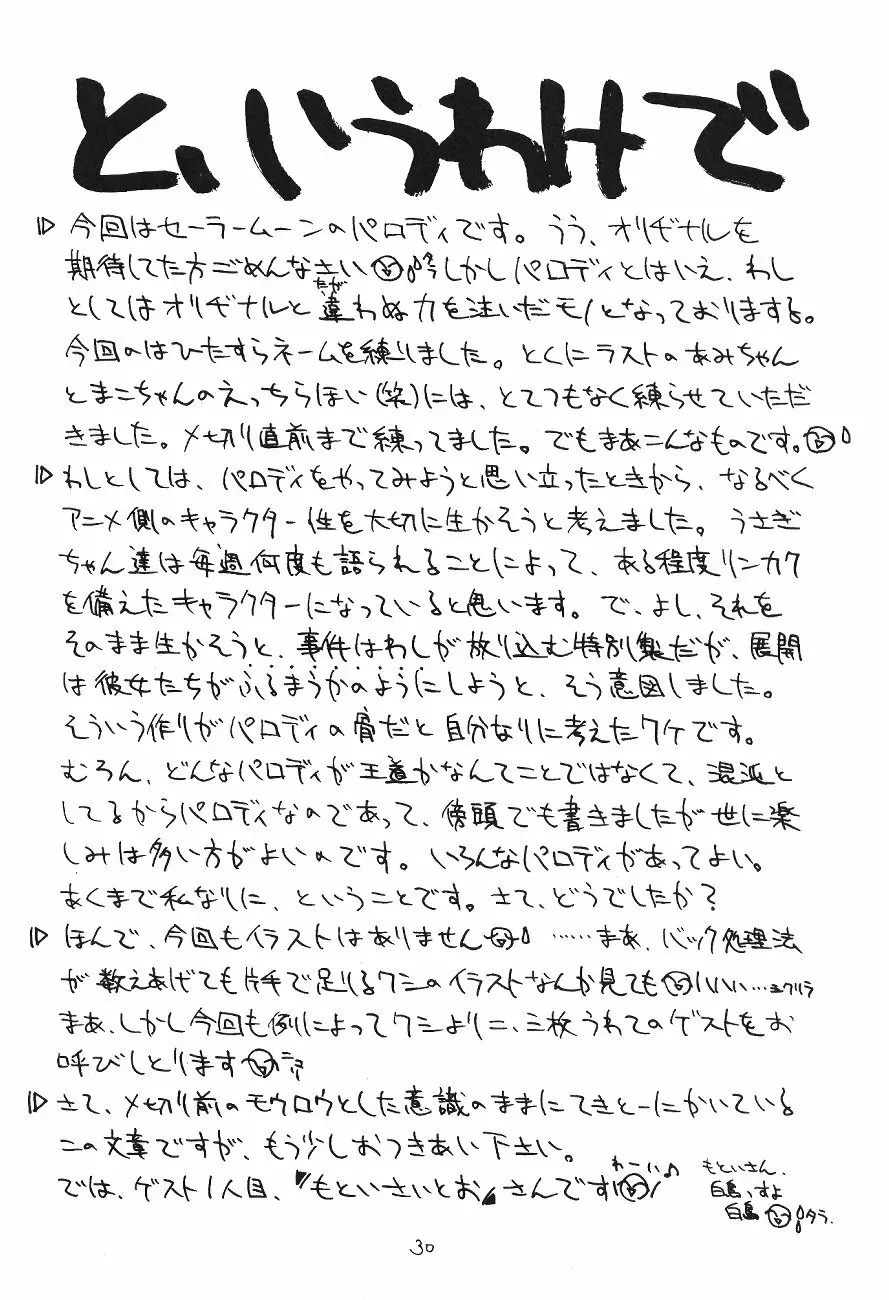 というわけで
▷ 今回はセーラームーンのパロディです。うう、オリヂナルを
期待してた方ごめんなさい しかしパロディとはいえ、わし
としてはオリヂナルと違わぬ力を注いだモノとなっておりまする。
たが
今回のはひたすらネームを練りました。とくにラストのあみちゃん
とまこちゃんのえっちらほい(笑)には、とてつもなく練らせていただ
きました。〆切り直前まで練ってました。でもまあこんなものです。
▷ わしとしては、パロディをやってみようと思い立ったときから、なるべく
アニメ側のキャラクター性を大切に生かそうと考えました。うさぎ
ちゃん達は毎週何度も語られることによって、ある程度リンカク
を備えたキャラクターになっていると思います。で、よし、それを
そのまま生かそうと、事件はわしが放り込む特別製だが、展開
は彼女たちがふるまうかのようにしようと、そう意図しました。
そういう作りがパロディの骨だと自分なりに考えたワケです。
むろん、どんなパロディが王道かなんてことではなくて、混沌と
してるからパロディなのであって、傍頭でも書きましたが世に楽
しみは多い方がよいのです。いろんなパロディがあってよい。
あくまで私なりに、ということです。さて、どうでしたか?
▷ ほんで、今回もイラストはありません ……まあ、バック処理法
が数えあげても片手で足りるワシのイラストなんか見ても
まあ、しかし今回も例によってワシより二、三枚うわてのゲストをお
呼びしとります
▷ さて、〆切り前のモウロウとした意識のままにてきとーにかいている
この文章ですが、もう少しおつきあい下さい。
では、ゲスト1人目、『もといさいとお』さんです!
わーい♪
もといさん、
白鳥っすよ
白鳥 タラ.
30